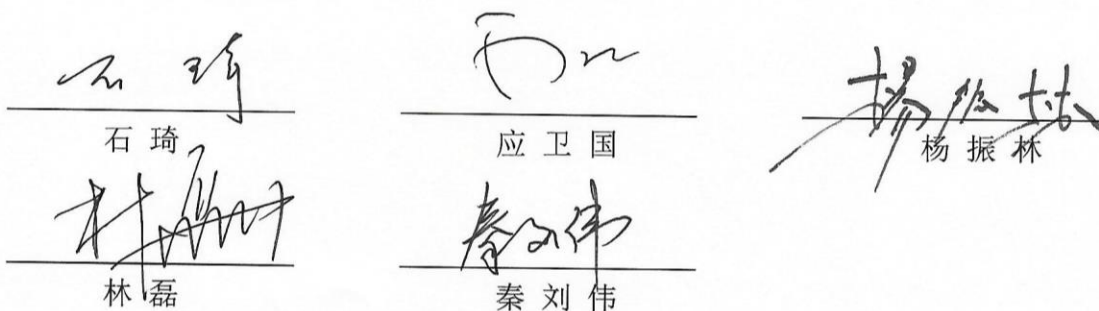 石琦
石 琦
应卫国
楊振林
杨 振 林
林磊
林 磊
秦刘伟
秦 刘 伟